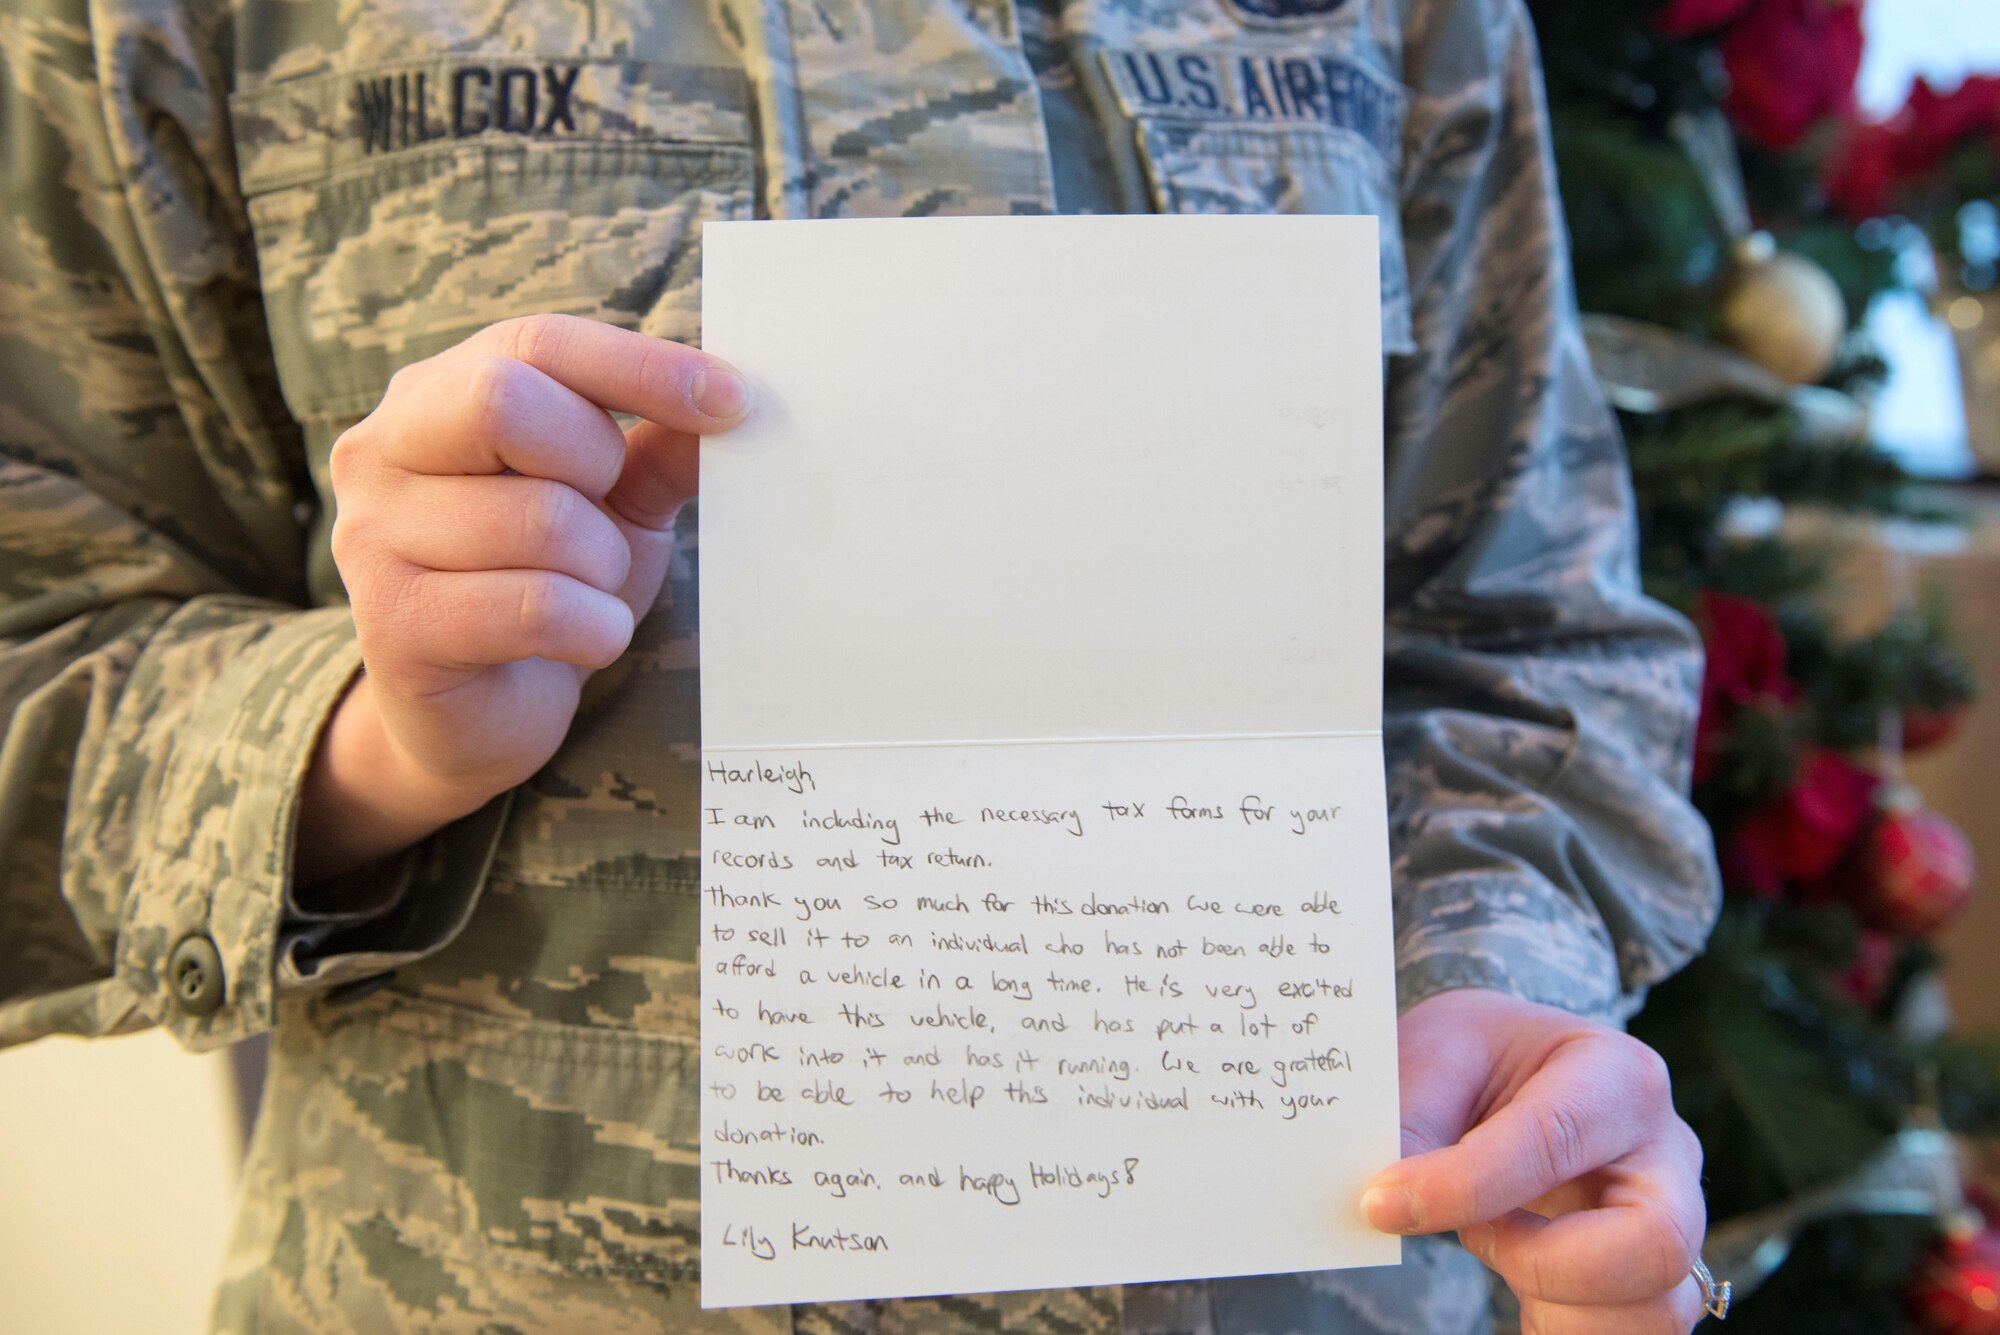 WILCOX
U.S. AIRFORCE
Harleigh,
I am including the necessary tax forms for your
records and tax return.
Thank you so much for this donation We were able
to sell it to an individual who has not been able to
afford a vehicle in a long time. He is very excited
to have this vehicle, and has put a lot of
work into it and has it running. We are grateful
to be able to help this individual with your
donation.
Thanks again, and happy Holidays!
Lily Knutson